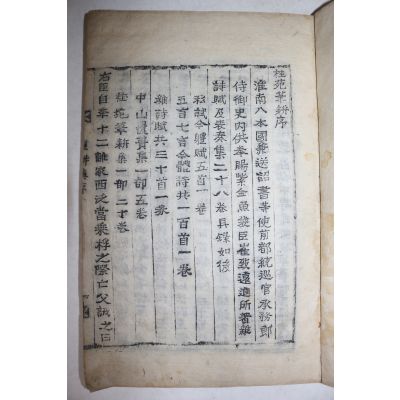 桂苑筆耕序
淮南入本國兼送詔書等使前都統巡官承務郎
侍御史內供奉賜紫金魚袋臣崔致遠進所著雜
詩賦及表奏集二十八卷具錄如後
私試今體賦五首一卷
五言七言今體詩共一百首一卷
雜詩賦共三十首一卷
中山覆簣集一部五卷
桂苑筆耕集一部二十卷
右臣自年十二離家西泛當乘桴之際亡父誡之曰